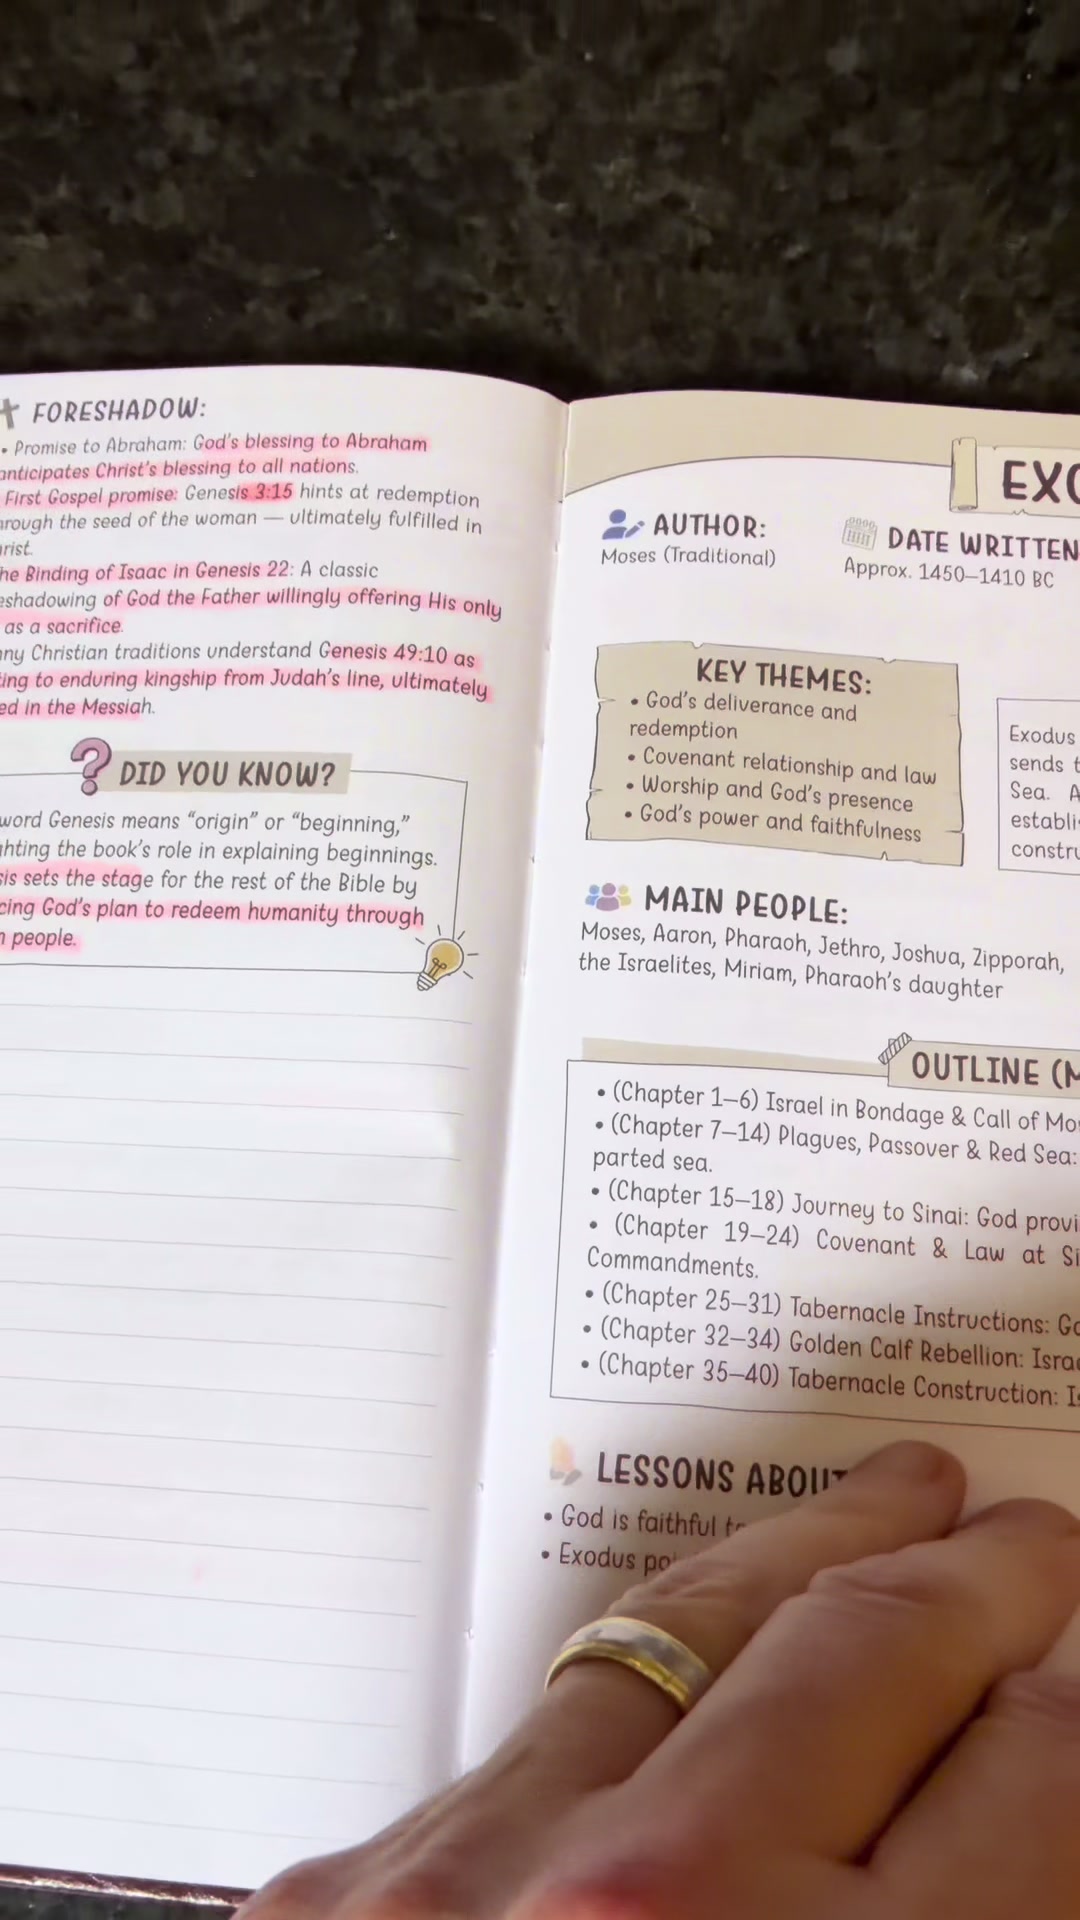 FORESHADOW:
• Promise to Abraham: God's blessing to Abraham
anticipates Christ's blessing to all nations.
First Gospel promise: Genesis 3:15 hints at redemption
hrough the seed of the woman — ultimately fulfilled in
rist.
he Binding of Isaac in Genesis 22: A classic
eshadowing of God the Father willingly offering His only
as a sacrifice.
ny Christian traditions understand Genesis 49:10 as
ing to enduring kingship from Judah's line, ultimately
ed in the Messiah.
? DID YOU KNOW?
word Genesis means “origin” or “beginning,”
hting the book's role in explaining beginnings.
sis sets the stage for the rest of the Bible by
cing God's plan to redeem humanity through
n people.
EXO
AUTHOR:
Moses (Traditional)
DATE WRITTEN
Approx. 1450–1410 BC
KEY THEMES:
• God's deliverance and
redemption
• Covenant relationship and law
• Worship and God's presence
• God's power and faithfulness
Exodus
sends t
Sea. A
establi
constru
MAIN PEOPLE:
Moses, Aaron, Pharaoh, Jethro, Joshua, Zipporah,
the Israelites, Miriam, Pharaoh's daughter
OUTLINE (M
• (Chapter 1–6) Israel in Bondage & Call of Mo
• (Chapter 7–14) Plagues, Passover & Red Sea:
parted sea.
• (Chapter 15–18) Journey to Sinai: God provi
• (Chapter 19–24) Covenant & Law at Si
Commandments.
• (Chapter 25–31) Tabernacle Instructions: Go
• (Chapter 32–34) Golden Calf Rebellion: Israe
• (Chapter 35–40) Tabernacle Construction: Is
LESSONS ABOUT
• God is faithful t
• Exodus po